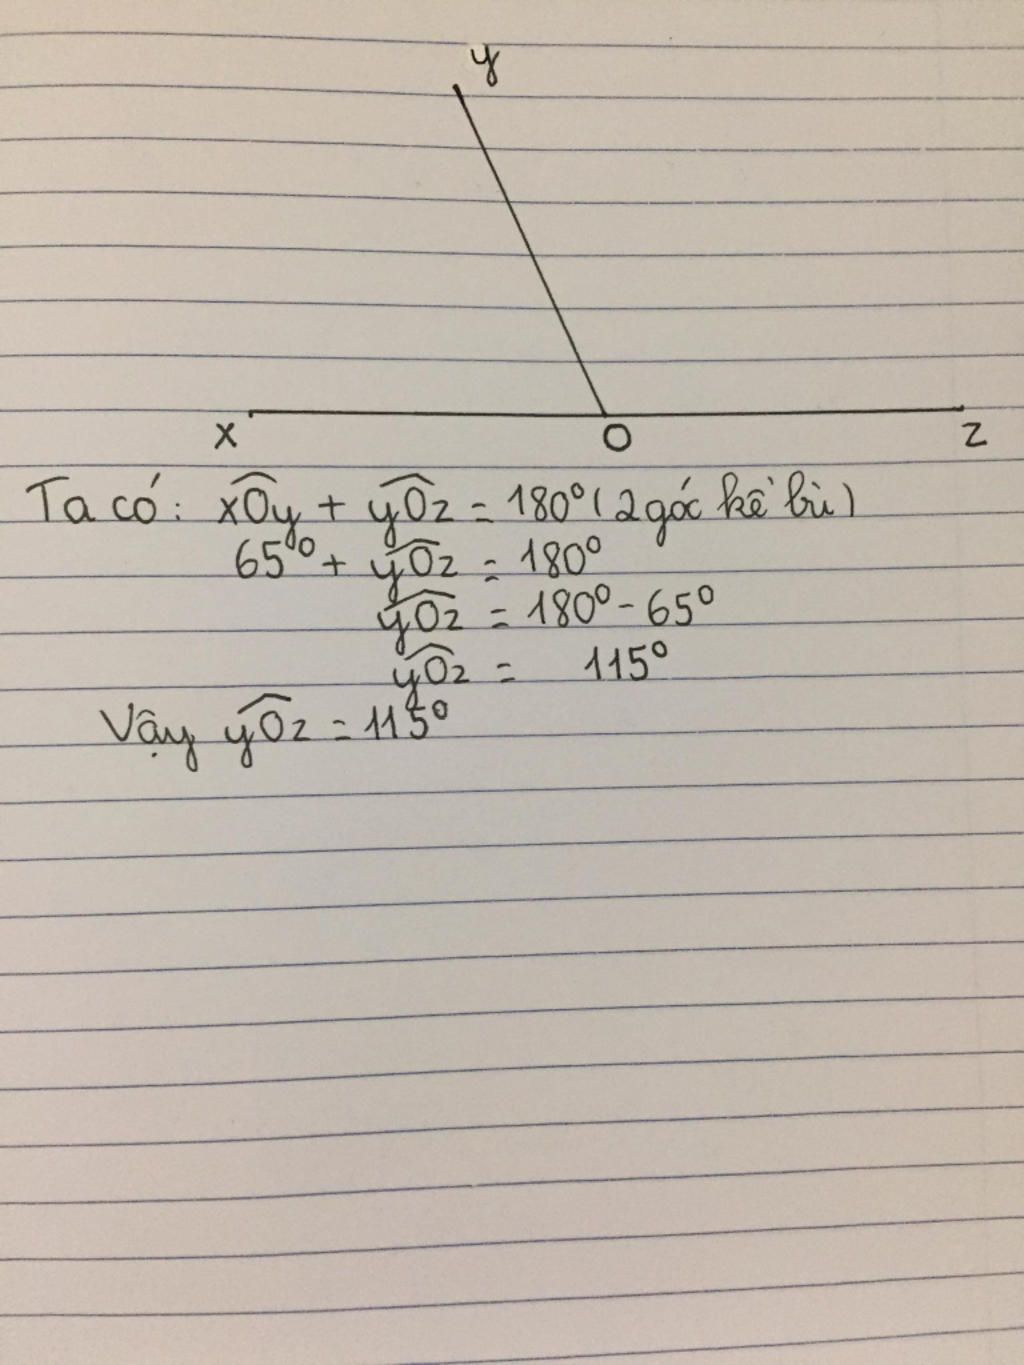 y
x O z
Ta có: xOy + yOz = 180° (2 góc kề bù)
65° + yOz = 180°
yOz = 180° - 65°
yOz = 115°
Vậy yOz = 115°